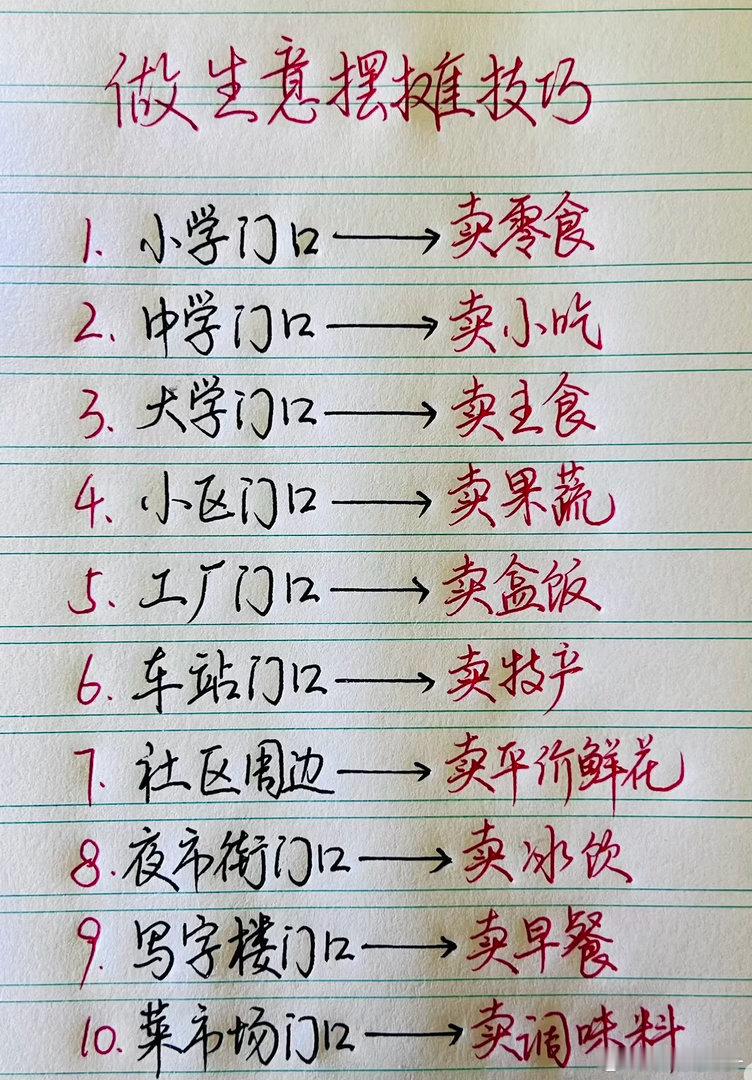 做生意摆摊技巧
1. 小学门口→卖零食
2. 中学门口→卖小吃
3. 大学门口→卖主食
4. 小区门口→卖果蔬
5. 工厂门口→卖盒饭
6. 车站门口→卖特产
7. 社区周边→卖平价鲜花
8. 夜市街门口→卖冰饮
9. 写字楼门口→卖早餐
10. 菜市场门口→卖调味料